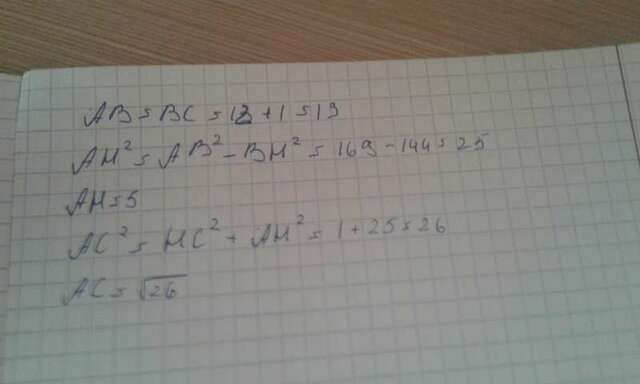 AB = BC = 12 + 1 = 13
AH² = AB² - BH² = 169 - 144 = 25
AH = 5
AC² = HC² + AH² = 1 + 25 = 26
AC = √26